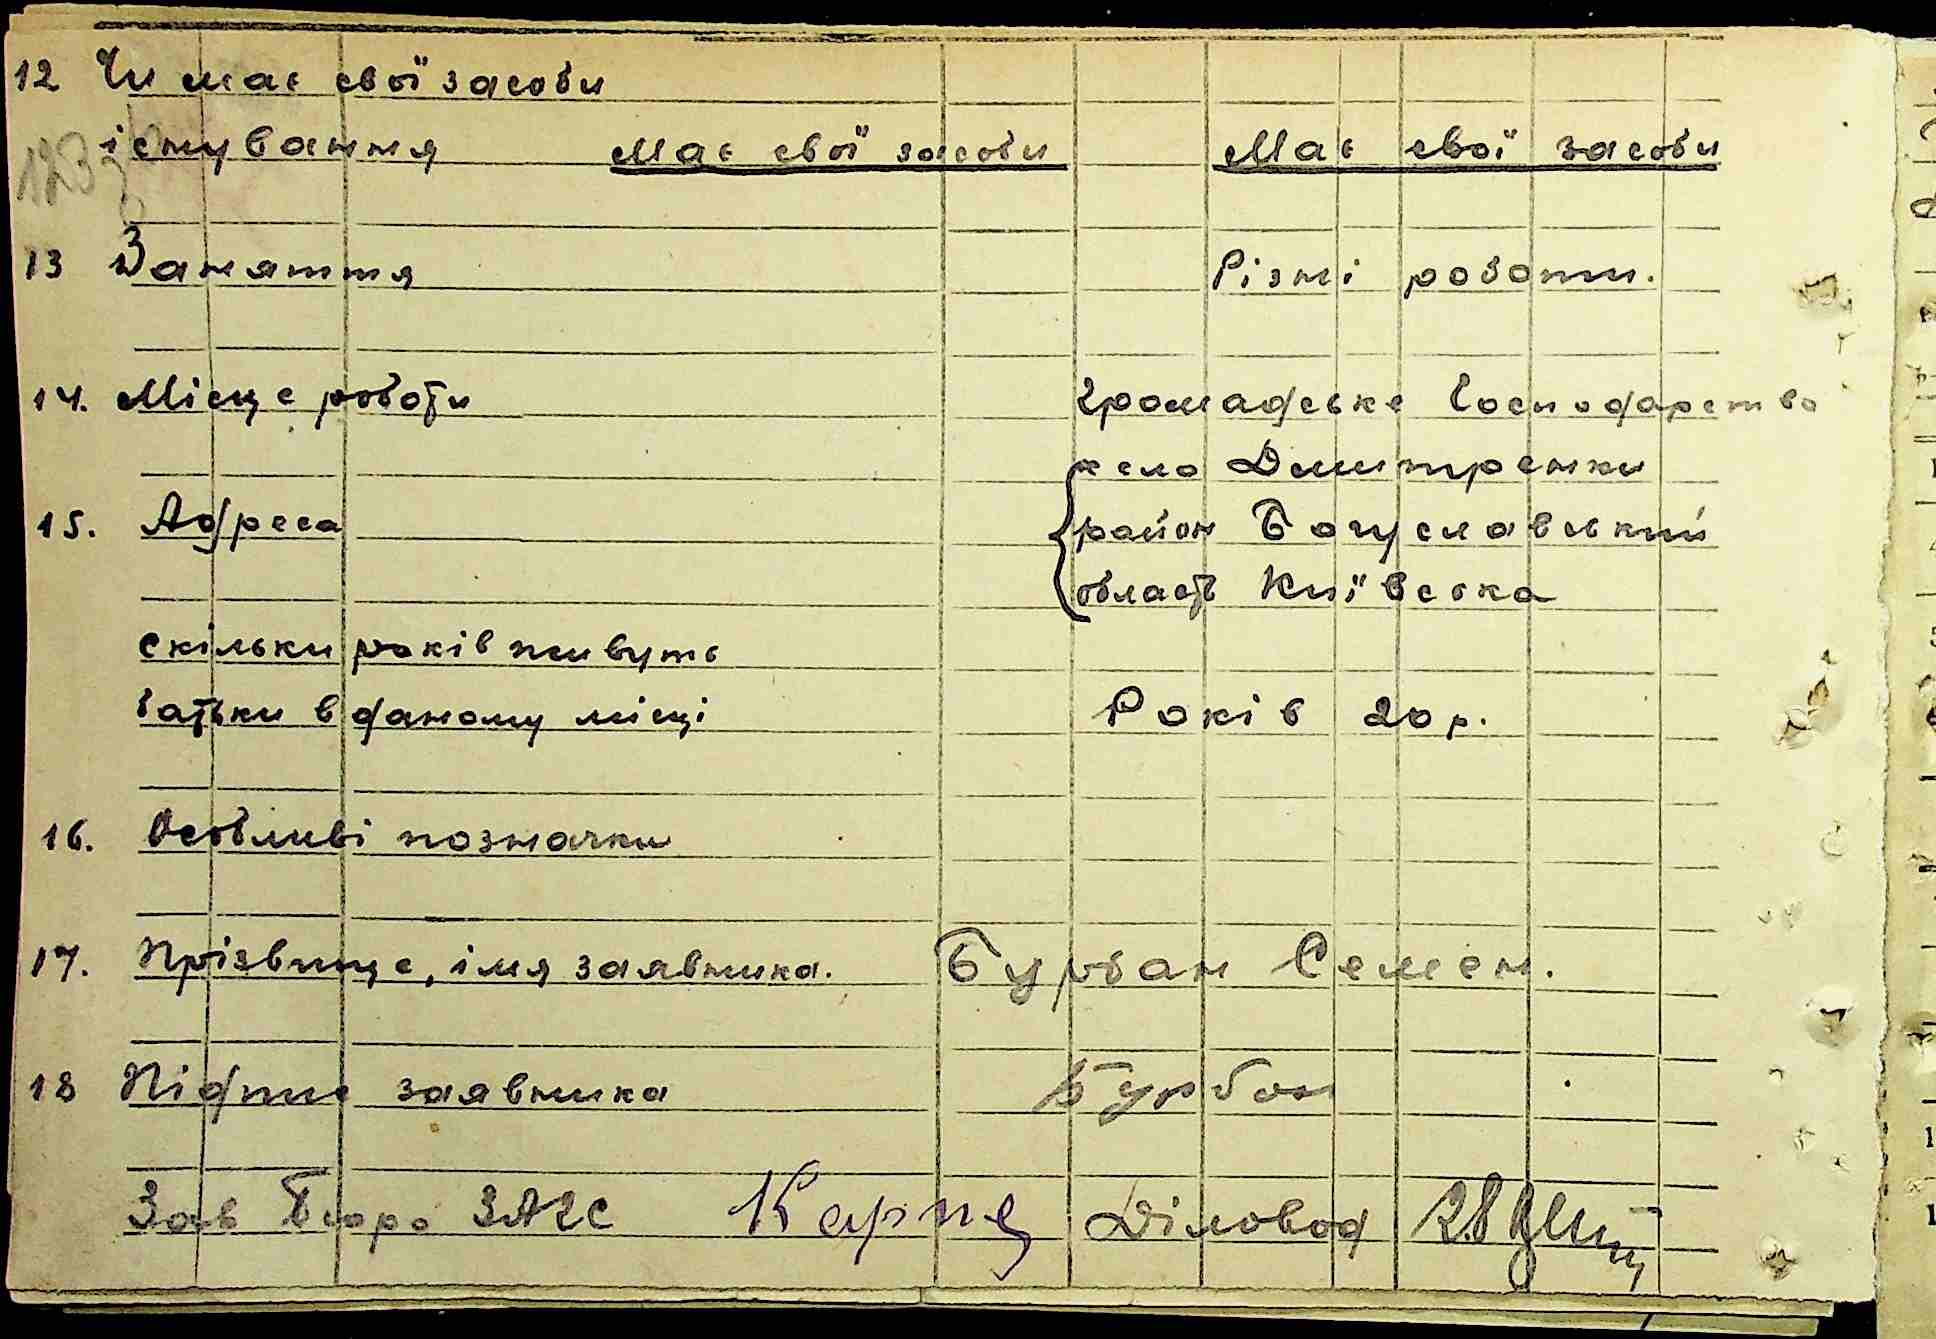 12 Чи має свої засоби
існування має свої засоби Має свої засоби
13 Заняття Різні роботи.
14. Місце роботи Громадське Господарство
село Дмитренки
15. Адреса район Богуславський
область Київська
скільки років живуть
батьки в даному місці Років 20 р.
16. Особливі позначки
17. Прізвище, імя заявника. Бурбан Семен.
18 Підпис заявника Бурбан
Зав Бюро ЗАГС Діловод